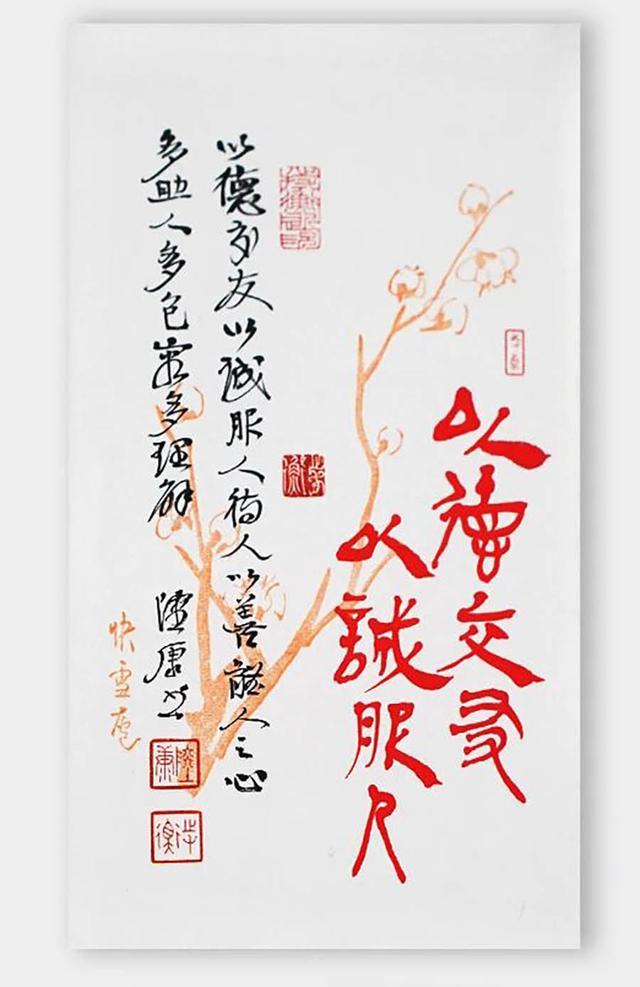 以德交友
以誠服人
以德交友以誠服人待人以善證人之心
多助人多包容多理解
陸康
快雪廬